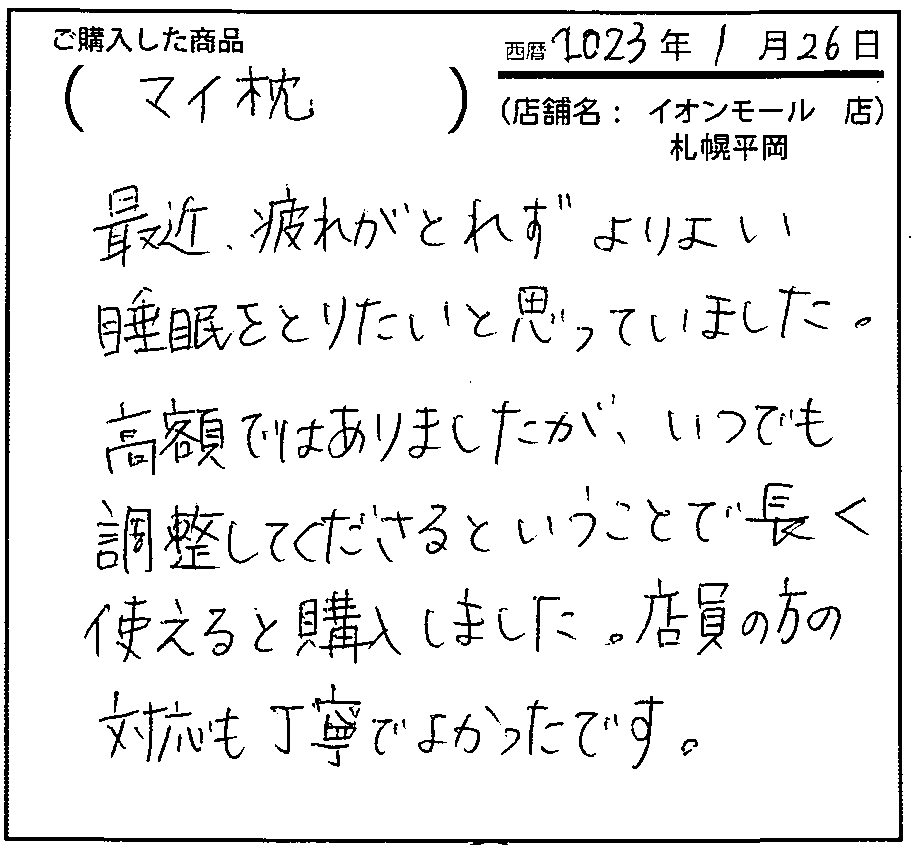 ご購入した商品
( マイ枕 )
西暦 2023年 1月26日
(店舗名: イオンモール 店)
札幌平岡
最近、疲れがとれず よりよい
睡眠をとりたいと思っていました。
高額ではありましたが、いつでも
調整してくださるということで長く
使えると購入しました。店員の方の
対応も丁寧でよかったです。